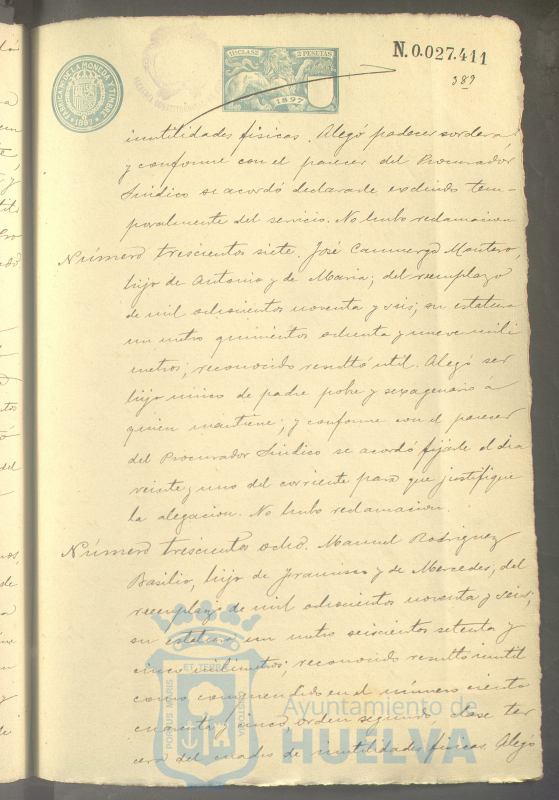 11ª CLASE 2 PESETAS
1897
FABRICA DE LA MONEDA Y TIMBRE
1897
N.0.027.411
389
inutilidades físicas. Alegó padecer sordera
y conforme con el parecer del Procurador
Sindico se acordó declararle excluido tem-
poralmente del servicio. No hubo reclamacion
Número trescientos siete. José Montero,
hijo de Antonio y de Maria; del reemplazo
de mil ochocientos noventa y seis; su estatura
un metro quinientos ochenta y nueve mili
metros; reconocido resultó útil. Alegó ser
hijo único de padre pobre y sexagenario á
quien mantiene; y conforme con el parecer
del Procurador Sindico se acordó fijarle el dia
veinte y uno del corriente para que justifique
la alegacion. No hubo reclamacion.
Número trescientos ocho. Manuel Rodriguez
Basilio, hijo de Francisco y de Mercedes, del
reemplazo de mil ochocientos noventa y seis;
su estatura un metro seiscientos setenta y
cinco milimetros; reconocido resultó inutil
como comprendido en el número ciento
cuarenta y cinco, orden segundo, clase ter
cera del cuadro de inutilidades físicas. Alegó
PORTUS MARIS ET TERRE CUSTODIA
Ayuntamiento de
HUELVA